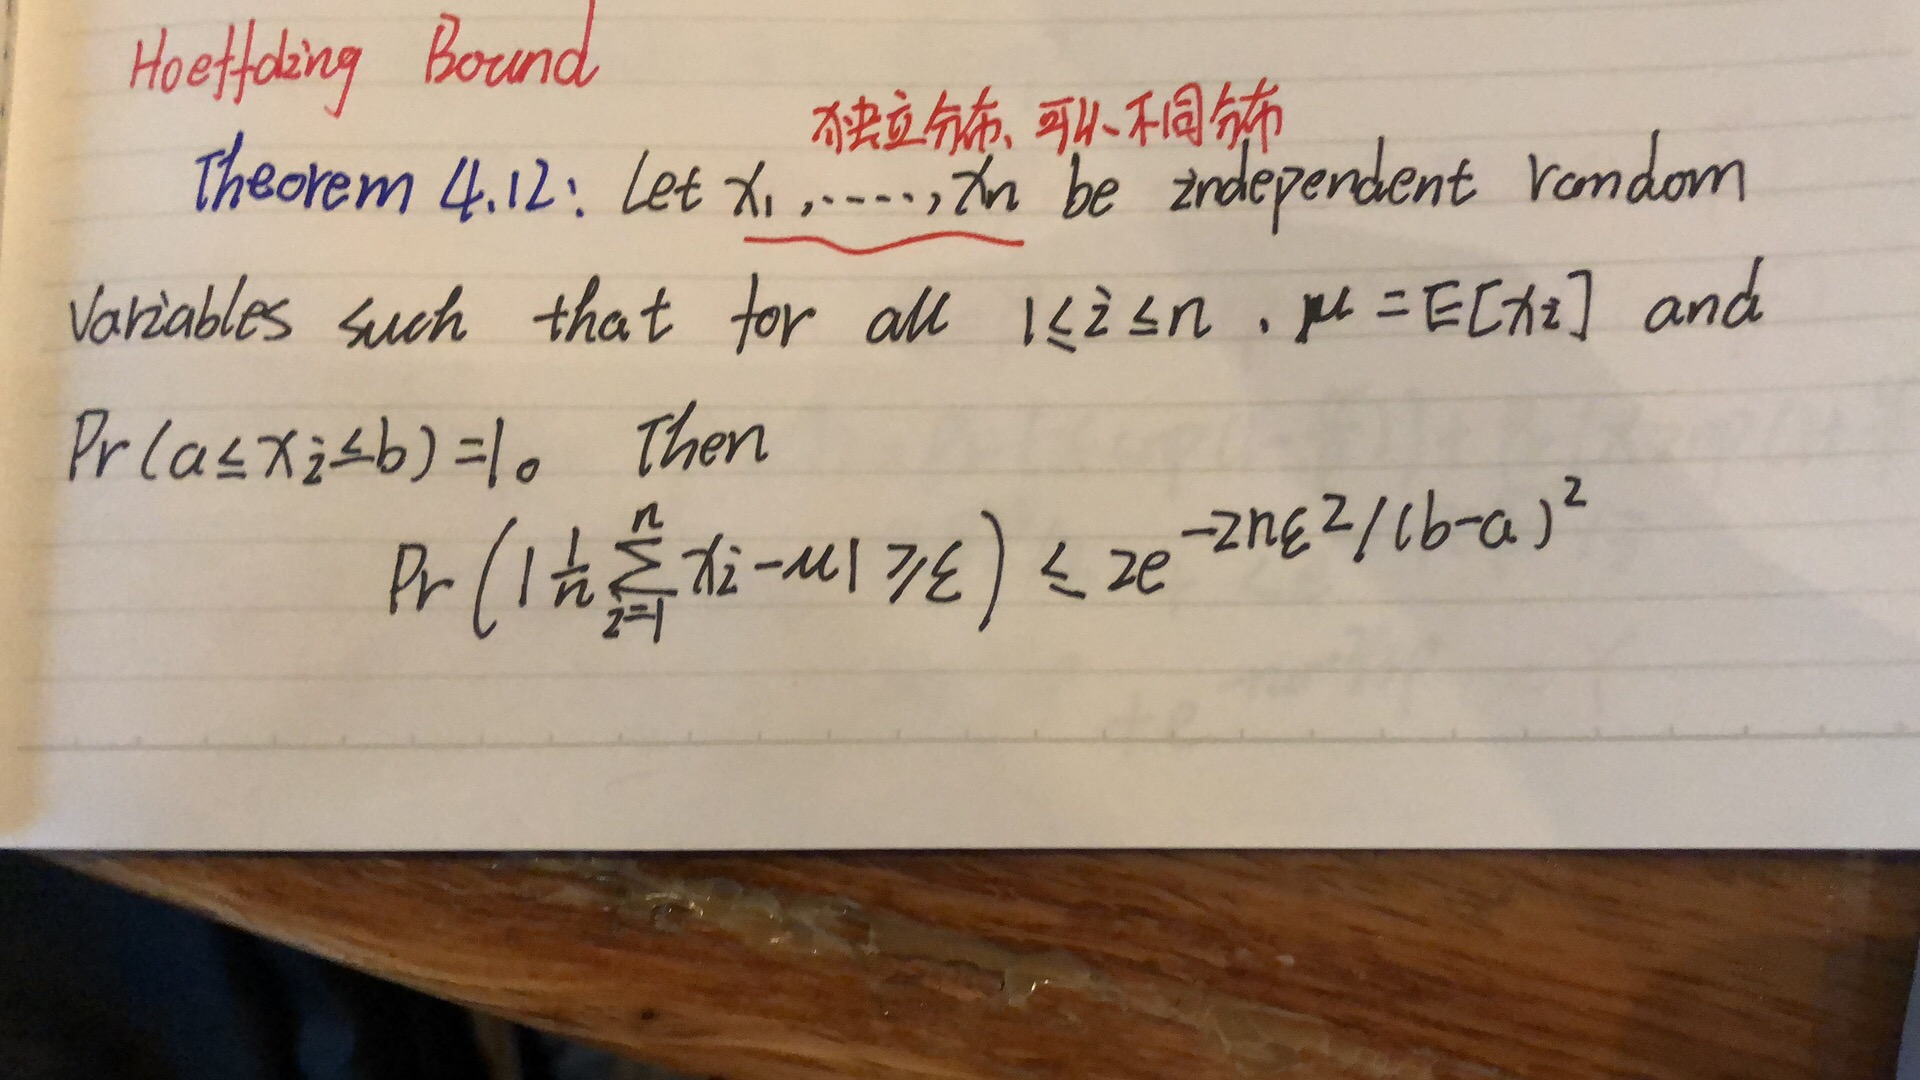 Hoeffding Bound
独立分布、可以不同分布
Theorem 4.12: Let x₁,.....,xₙ be independent random
Variables such that for all 1≤i≤n, μ=E[xᵢ] and
Pr(a≤xᵢ≤b)=1。 Then
Pr(|1/n ∑ᵢ₌₁ⁿ xᵢ-μ|≥ε) ≤ 2e^(-2nε²/(b-a)²)